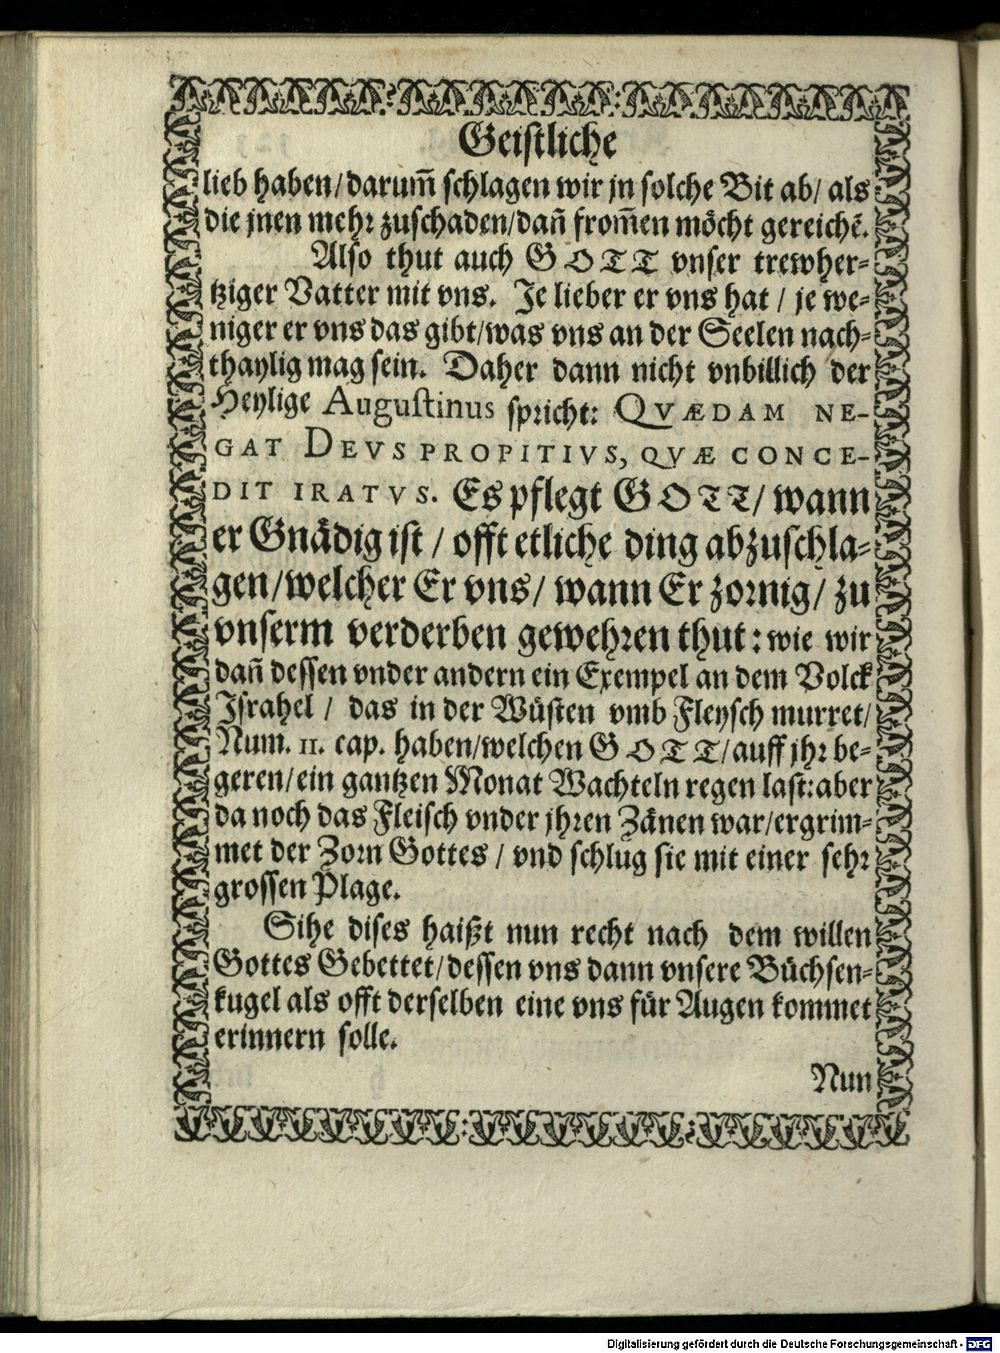 Geistliche
lieb haben/darum̃ schlagen wir jn solche Bit ab/ als
die jnen mehr zuschaden/dañ from̃en möcht gereichẽ.
Also thut auch GOTT vnser trewher-
tziger Vatter mit vns. Je lieber er vns hat / je we-
niger er vns das gibt/was vns an der Seelen nach-
thaylig mag sein. Daher dann nicht vnbillich der
Heylige Augustinus spricht: QVÆDAM NE-
GAT DEVS PROPITIVS, QVÆ CONCE-
DIT IRATVS. Es pflegt GOTT/ wann
er Gnädig ist / offt etliche ding abzuschla-
gen/welcher Er vns/ wann Er zornig/ zu
vnserm verderben gewehren thut: wie wir
dañ dessen vnder andern ein Exempel an dem Volck
Israhel / das in der Wüsten vmb Fleysch murret/
Num. 11. cap. haben/welchen GOTT/auff jhr be-
geren/ein gantzen Monat Wachteln regen last:aber
da noch das Fleisch vnder jhren Zänen war/ergrim-
met der Zorn Gottes / vnd schlug sie mit einer sehr
grossen Plage.
Sihe dises haißt nun recht nach dem willen
Gottes Gebettet/dessen vns dann vnsere Büchsen-
kugel als offt derselben eine vns für Augen kommet
erinnern solle.
Nun
Digitalisierung gefördert durch die Deutsche Forschungsgemeinschaft - DFG